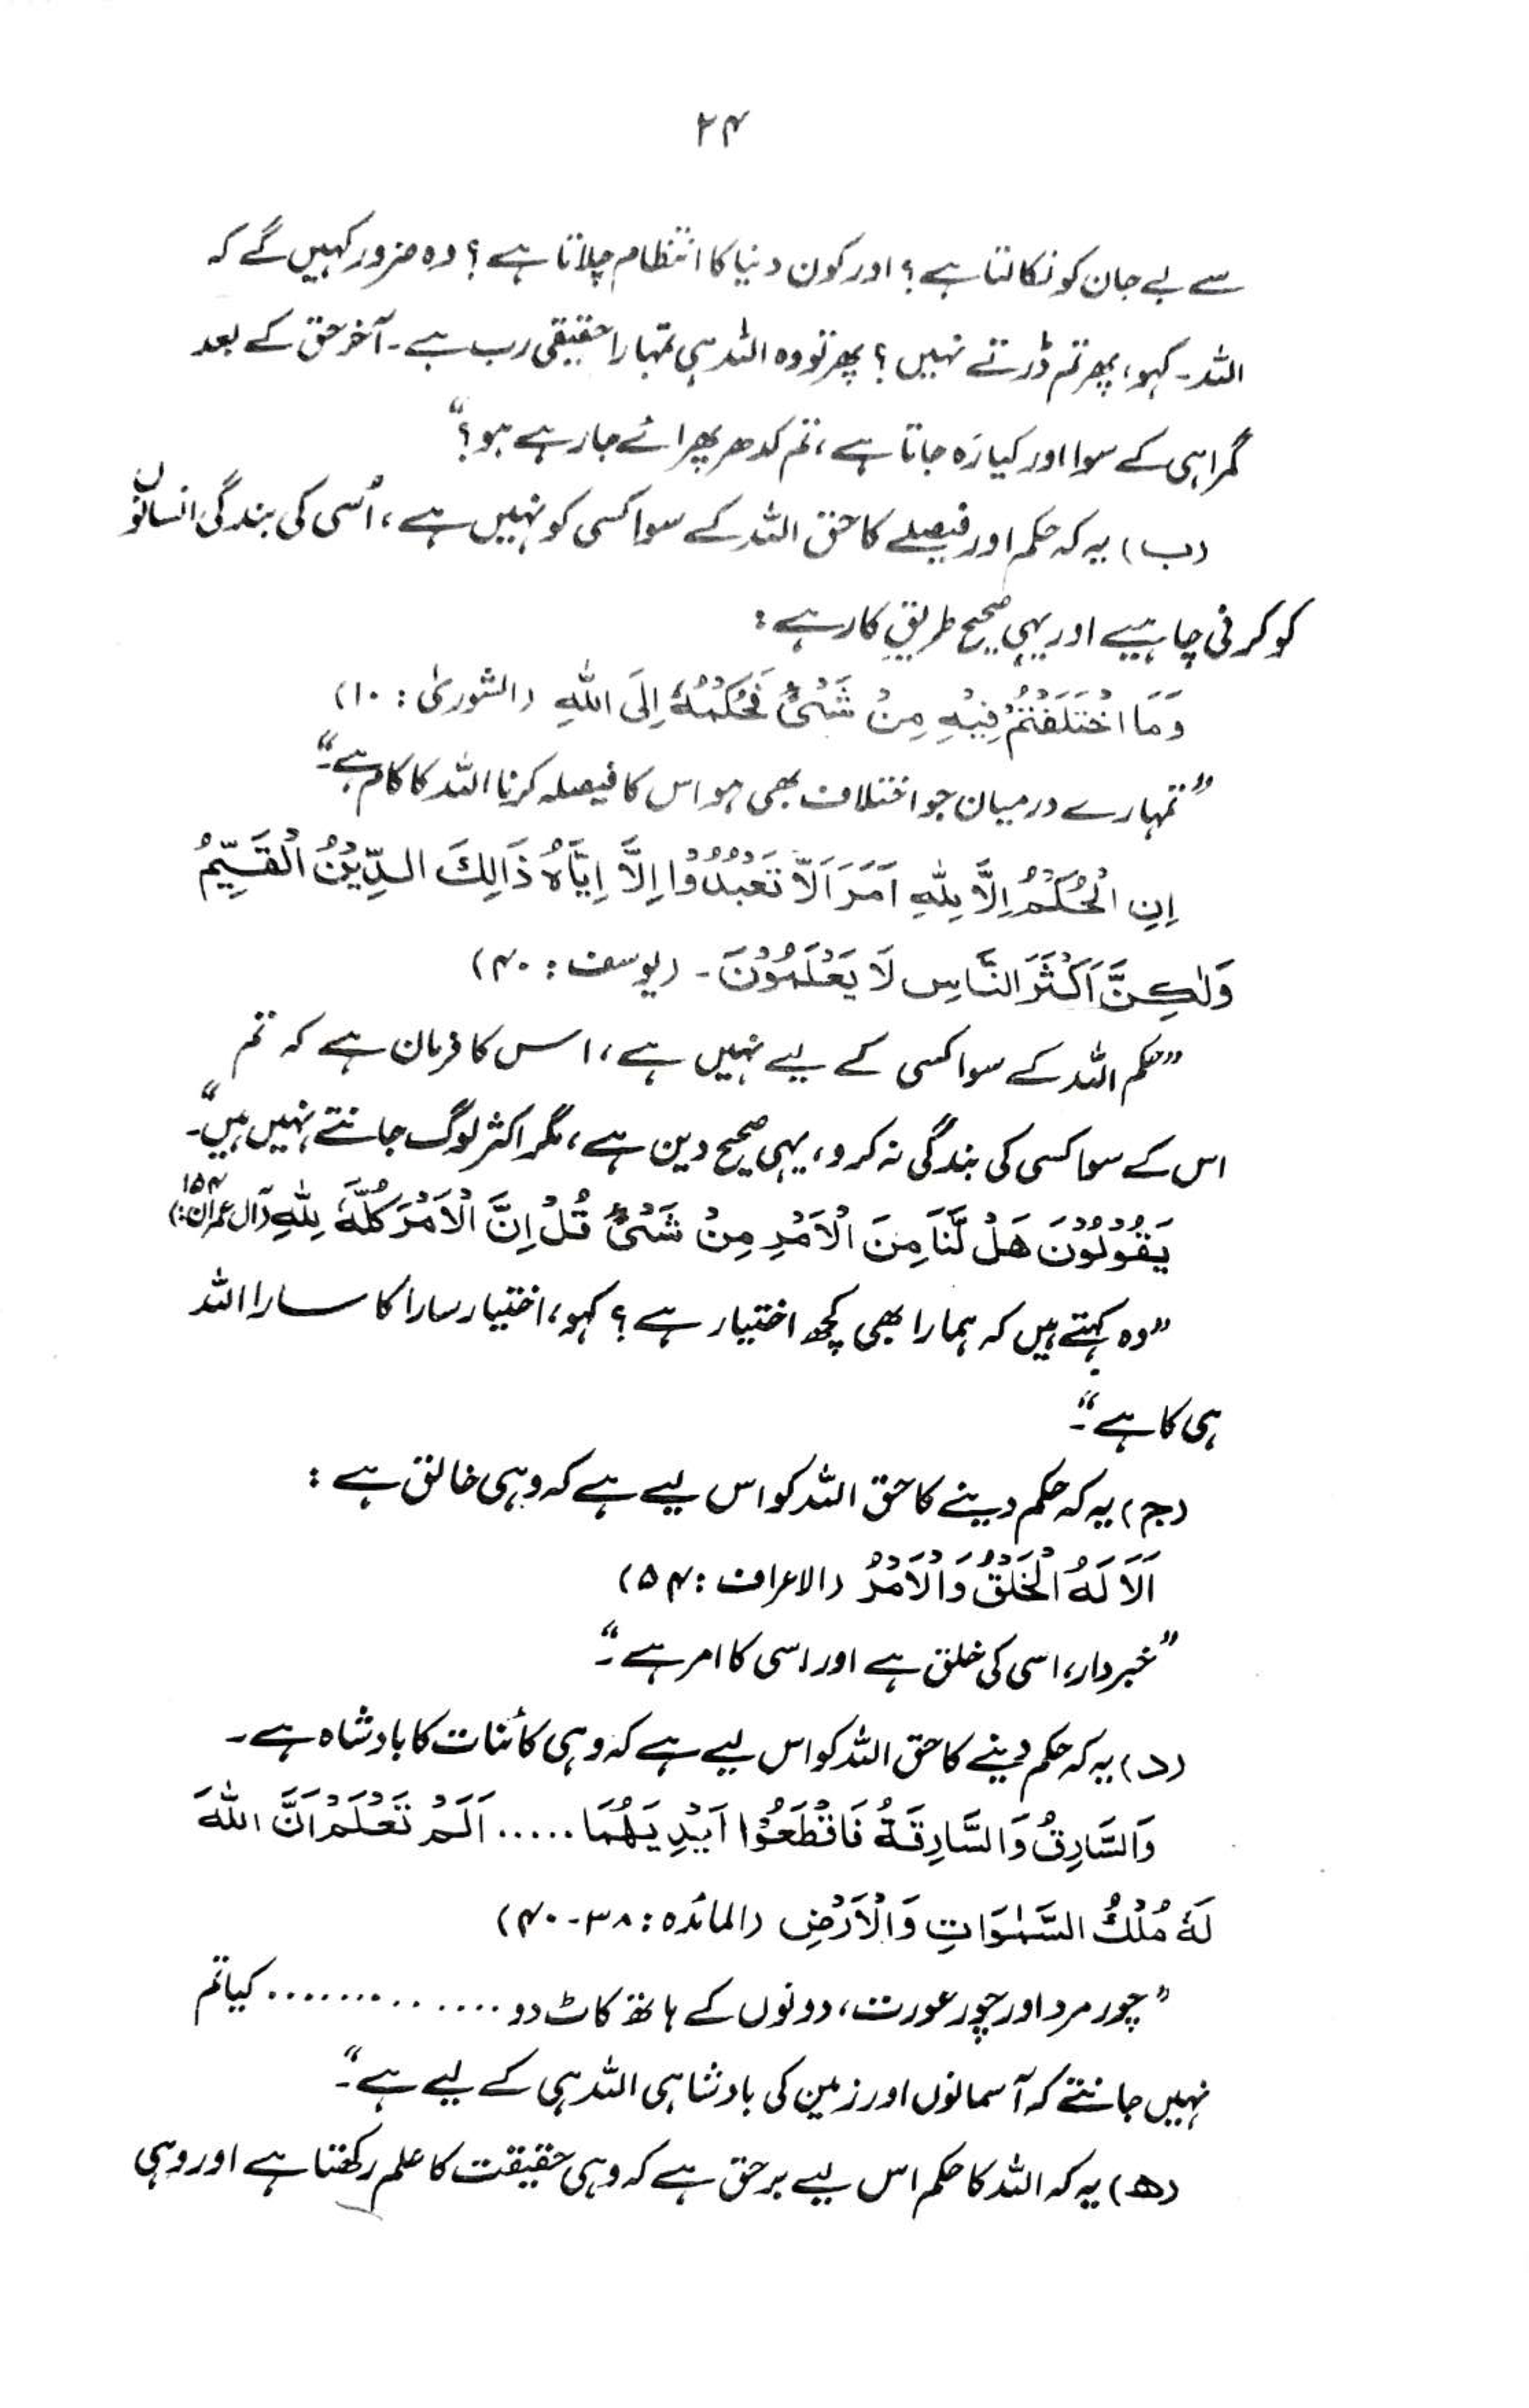 ۲۴
سے بے جان کو نکالتا ہے؟ اور کون دنیا کا انتظام چلاتا ہے؟ وہ ضرور کہیں گے کہ
اللہ۔ کہو، پھر تم ڈرتے نہیں؟ پھر تو وہ اللہ ہی تمہارا حقیقی رب ہے۔ آخر حق کے بعد
گمراہی کے سوا اور کیا رَہ جاتا ہے، تم کدھر پھرائے جا رہے ہو؟“
(ب) یہ کہ حکم اور فیصلے کا حق اللہ کے سوا کسی کو نہیں ہے، اُسی کی بندگی انسانوں
کو کرنی چاہیے اور یہی صحیح طریقِ کار ہے:
وَمَا اخْتَلَفْتُمْ فِیْہِ مِنْ شَیْءٍ فَحُکْمُہٗ اِلَی اللّٰہِ (الشوریٰ: ۱۰)
”تمہارے درمیان جو اختلاف بھی ہو اس کا فیصلہ کرنا اللہ کا کام ہے۔“
اِنِ الْحُکْمُ اِلَّا لِلّٰہِ اَمَرَ اَلَّا تَعْبُدُوْا اِلَّا اِیَّاہُ ذَالِکَ الدِّیْنُ الْقَیِّمُ
وَلٰکِنَّ اَکْثَرَ النَّاسِ لَا یَعْلَمُوْنَ۔ (یوسف: ۴۰)
”حکم اللہ کے سوا کسی کے لیے نہیں ہے، اس کا فرمان ہے کہ تم
اس کے سوا کسی کی بندگی نہ کرو، یہی صحیح دین ہے، مگر اکثر لوگ جانتے نہیں ہیں۔“
یَقُوْلُوْنَ ھَلْ لَّنَا مِنَ الْاَمْرِ مِنْ شَیْءٍ قُلْ اِنَّ الْاَمْرَ کُلَّہٗ لِلّٰہِ (آل عمران: ۱۵۴)
”وہ کہتے ہیں کہ ہمارا بھی کچھ اختیار ہے؟ کہو، اختیار سارا کا سارا اللہ
ہی کا ہے۔“
(ج) یہ کہ حکم دینے کا حق اللہ کو اس لیے ہے کہ وہی خالق ہے:
اَلَا لَہُ الْخَلْقُ وَالْاَمْرُ (الاعراف: ۵۴)
”خبردار، اسی کی خلق ہے اور اسی کا امر ہے۔“
(د) یہ کہ حکم دینے کا حق اللہ کو اس لیے ہے کہ وہی کائنات کا بادشاہ ہے۔
وَالسَّارِقُ وَالسَّارِقَۃُ فَاقْطَعُوْا اَیْدِیَہُمَا ..... اَلَمْ تَعْلَمْ اَنَّ اللّٰہَ
لَہٗ مُلْکُ السَّمٰوَاتِ وَالْاَرْضِ (المائدہ: ۳۸-۴۰)
”چور مرد اور چور عورت، دونوں کے ہاتھ کاٹ دو ............. کیا تم
نہیں جانتے کہ آسمانوں اور زمین کی بادشاہی اللہ ہی کے لیے ہے۔“
(ھ) یہ کہ اللہ کا حکم اس لیے برحق ہے کہ وہی حقیقت کا علم رکھتا ہے اور وہی